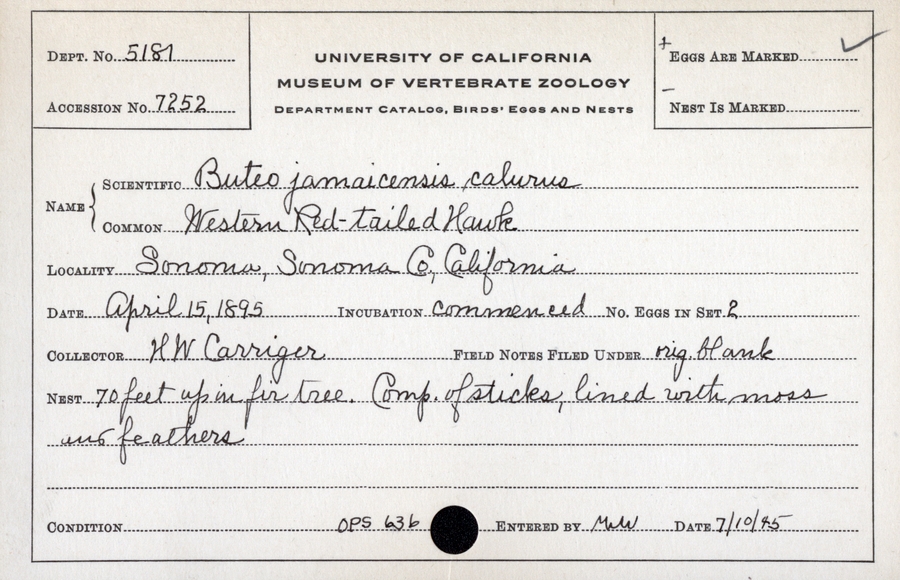 DEPT. No. 5181
ACCESSION No. 7252
UNIVERSITY OF CALIFORNIA
MUSEUM OF VERTEBRATE ZOOLOGY
DEPARTMENT CATALOG, BIRDS' EGGS AND NESTS
+ EGGS ARE MARKED ✓
- NEST IS MARKED
NAME { SCIENTIFIC Buteo jamaicensis calurus
COMMON Western Red-tailed Hawk
LOCALITY Sonoma, Sonoma Co., California
DATE April 15, 1895 INCUBATION commenced No. EGGS IN SET 2
COLLECTOR HW Carriger FIELD NOTES FILED UNDER orig. blank
NEST 70 feet up in fir tree. Comp. of sticks, lined with moss
and feathers
CONDITION OPS 636 ENTERED BY DATE 7/10/45